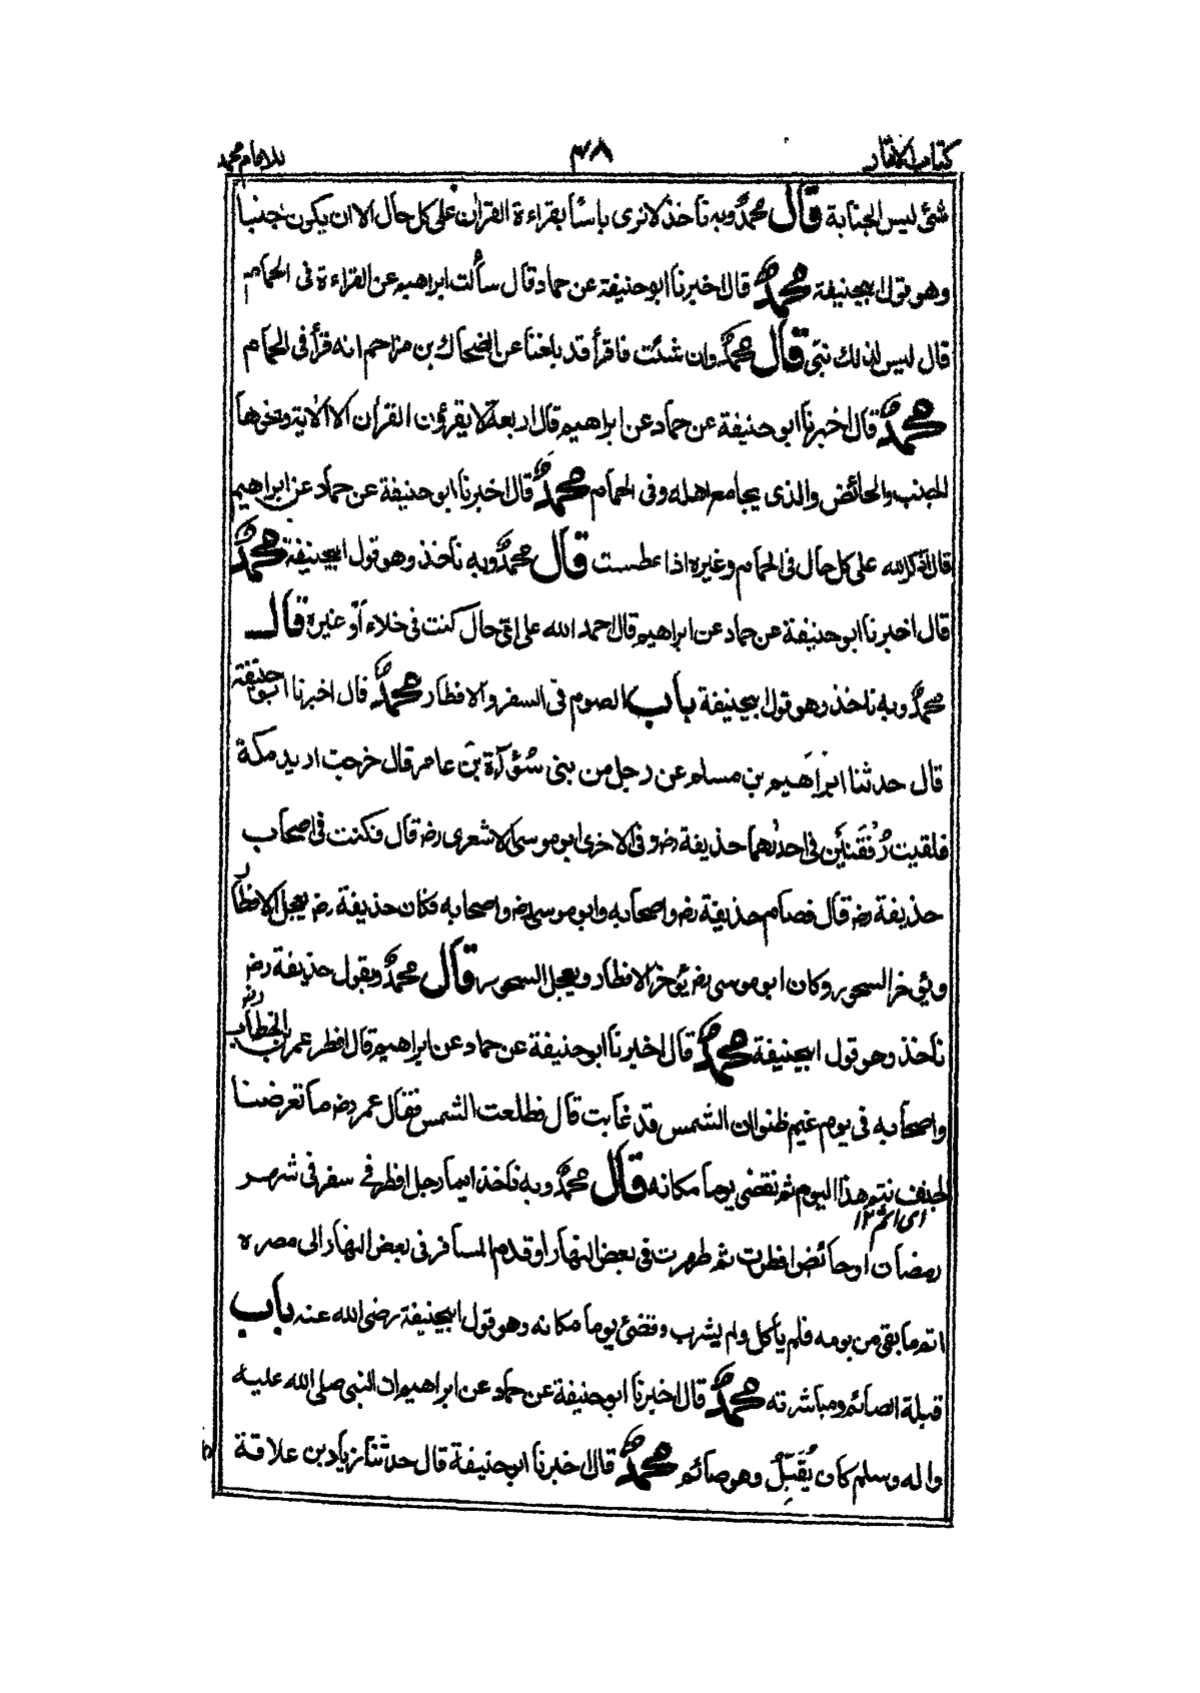 كتاب الاثار ٣٨ للامام محمد
شئ ليس الجنابة قال محمد وبه نأخذ لا نرى باسًا بقراءة القران على كل حال الا ان يكون جنبا
وهو قول ابيحنيفة محمد قال اخبرنا ابو حنيفة عن حماد قال سألت ابراهيم عن القراءة فى الحمام
قال ليس لذلك بنى قال محمد وان شئت فاقرأ قد بلغنا عن الضحاك بن مزاحم انه قرأ فى الحمام
محمد قال اخبرنا ابو حنيفة عن حماد عن ابراهيم قال اربعة لا يقرؤن القرأن الا الاية ونحوها
الجنب والحائض والذى يجامع اهله وفى الحمام محمد قال اخبرنا ابو حنيفة عن حماد عن ابراهيم
قال اذكر الله على كل حال فى الحمام وغيره اذا عطست قال محمد وبه نأخذ وهو قول ابيحنيفة محمد
قال اخبرنا ابو حنيفة عن حماد عن ابراهيم قال احمد الله على اىّ حال كنت فى خلاء أو غيره قال
محمد وبه ناخذ وهو قول ابيحنيفة باب الصوم فى السفر والافطار محمد قال اخبرنا ابو حنيفة
قال حدثنا ابراهيم بن مسلم عن رجل من بنى سُؤآءة بن عامر قال خرجت اريد مكة
فلقيت رُفقَتَين فى احدٰهما حذيفة رضه وفى الاخرى ابو موسى الاشعرى رضه قال فكنت فى اصحاب
حذيفة رضه قال فصام حذيفة رضه واصحابه وابو موسى رضه واصحابه فكان حذيفة رضه يعجل الافطار
ويؤخر السحور وكان ابو موسى رضه يؤخر الافطار ويعجل السحور قال محمد وبقول حذيفة رضه
نأخذ وهو قول ابيحنيفة محمد قال اخبرنا ابو حنيفة عن حماد عن ابراهيم قال افطر عمر بن الخطاب رضه
واصحابه فى يوم غيم ظنوا ان الشمس قد غابت قال فطلعت الشمس فقال عمر رضه ما تعرضنا
لجنف نتم هذا اليوم ثم نقضى يوما مكانه قال محمد وبه نأخذ ايما رجل افطر فى سفر فى شهر
اى اثم ١٢
رمضان او حائض افطرت ثم طهرت فى بعض النهار او قدم المسافر فى بعض النهار الى مصره
اتم ما بقى من يومه فلم يأكل ولم يشرب وقضى يوما مكانه وهو قول ابيحنيفة رضى الله عنه باب
قبلة الصائم ومباشرته محمد قال اخبرنا ابو حنيفة عن حماد عن ابراهيم ان النبى صلى الله عليه
واله وسلم كان يُقَبِّلُ وهو صائم محمد قال اخبرنا ابو حنيفة قال حدثنا زياد بن علاقة